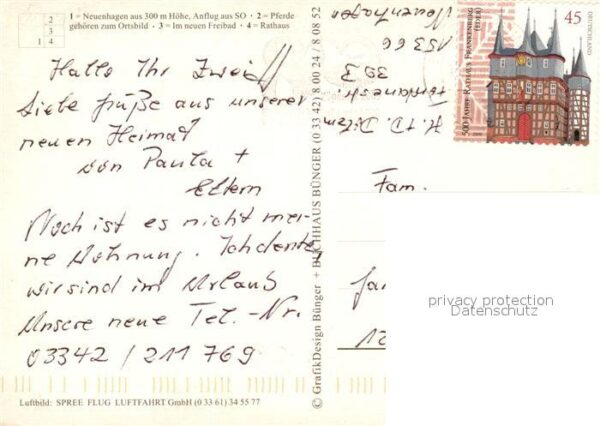 1 = Neuenhagen aus 300 m Höhe, Anflug aus SO · 2 = Pferde
gehören zum Ortsbild · 3 = Im neuen Freibad · 4 = Rathaus
2
3
1 4
Hallo Ihr Zwei
Liebe Grüße aus unserer
neuen Heimat
von Paula +
Eltern
Noch ist es nicht mei-
ne Wohnung. Ich denke,
wir sind im Urlaub
Unsere neue Tel.-Nr.
03342 / 211 769
Luftbild: SPREE FLUG LUFTFAHRT GmbH (0 33 61) 34 55 77
© GrafikDesign Bünger + BUCHHAUS BÜNGER (0 33 42) 8 00 24 / 8 08 52
H. + D.
39 3
15366
Neuenhagen
500 JAHRE RATHAUS FRANKENBERG
(EDER)
45
DEUTSCHLAND
Fam.
privacy protection
Datenschutz